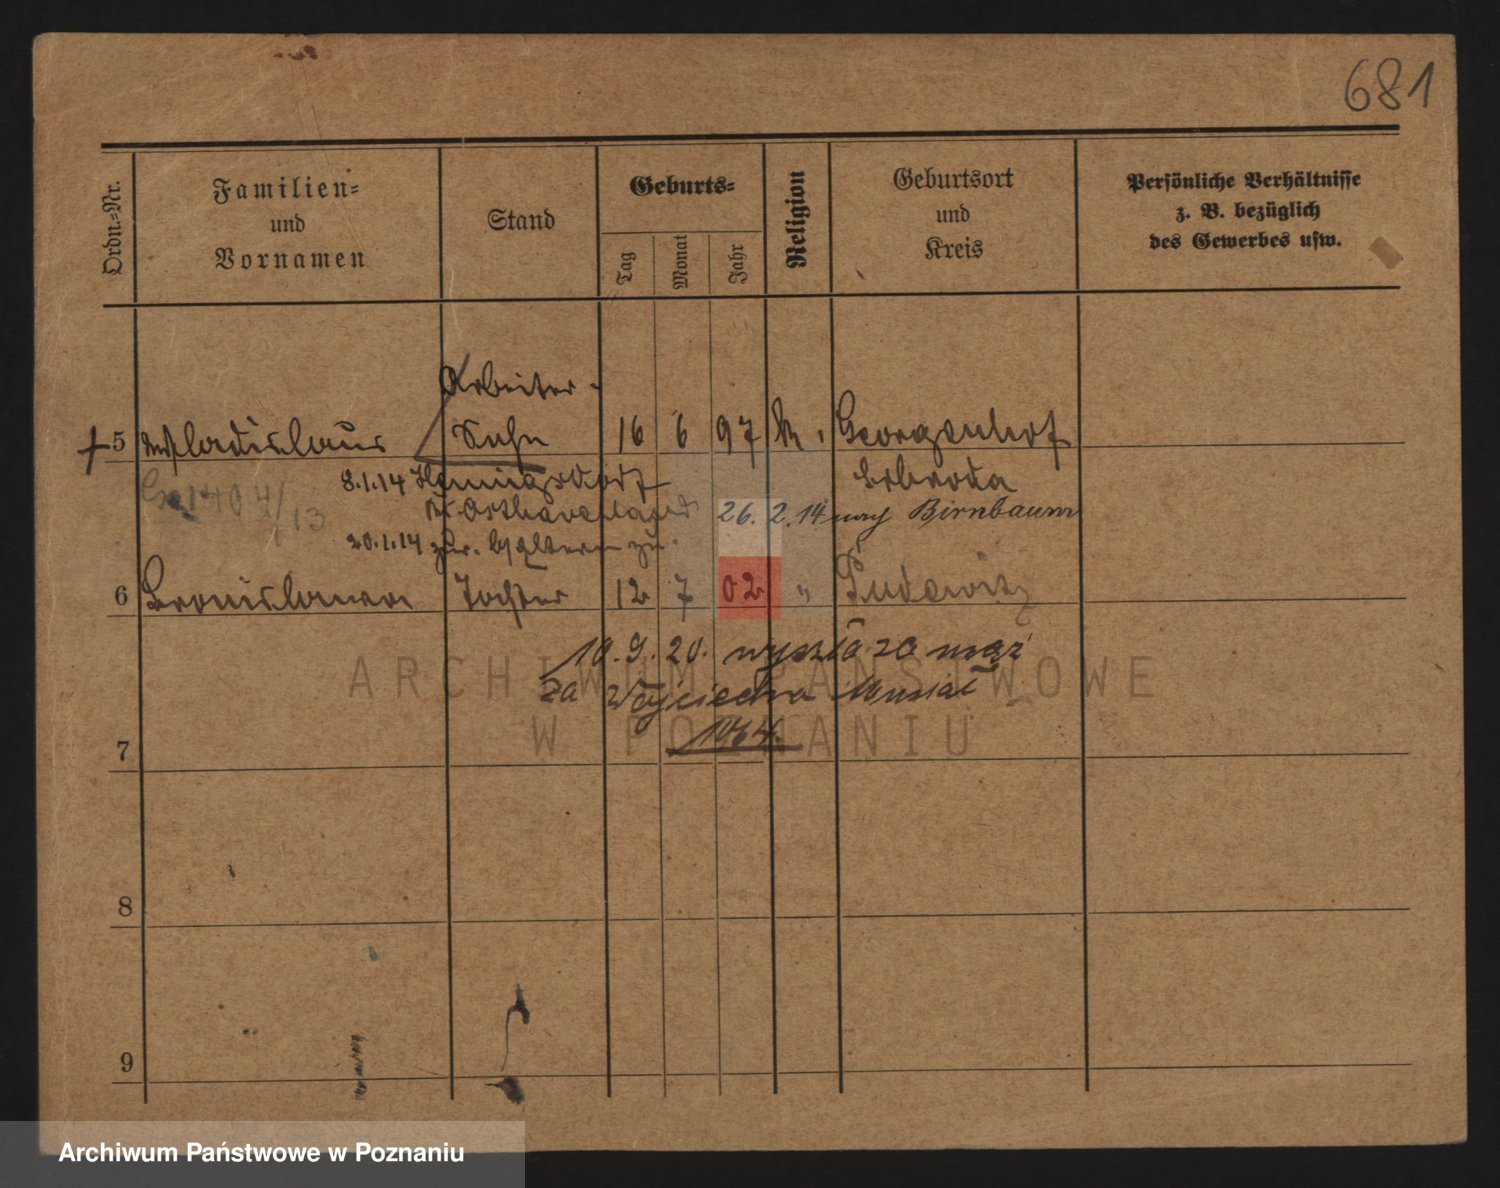 681
Ordn.-Nr.
Familien-
und
Vornamen
Stand
Geburts-
Tag
Monat
Jahr
Religion
Geburtsort
und
Kreis
Persönliche Verhältnisse
z. B. bezüglich
des Gewerbes usw.
Arbeiter
5 Wladislaus Sohn 16 6 97 k. Georgenhof
8.1.14 Hennigsdorf Schroda
Kr. Osthavelland 26.2.14 nach Birnbaum
20.1.14 zur. Eltern zu.
6 Bronislawa Tochter 12 7 02 " Pudewitz
10.9.20. wyszła za mąż
za Wojciecha Musiał
7
8
9
ARCHIWUM PAŃSTWOWE
W POZNANIU
Archiwum Państwowe w Poznaniu